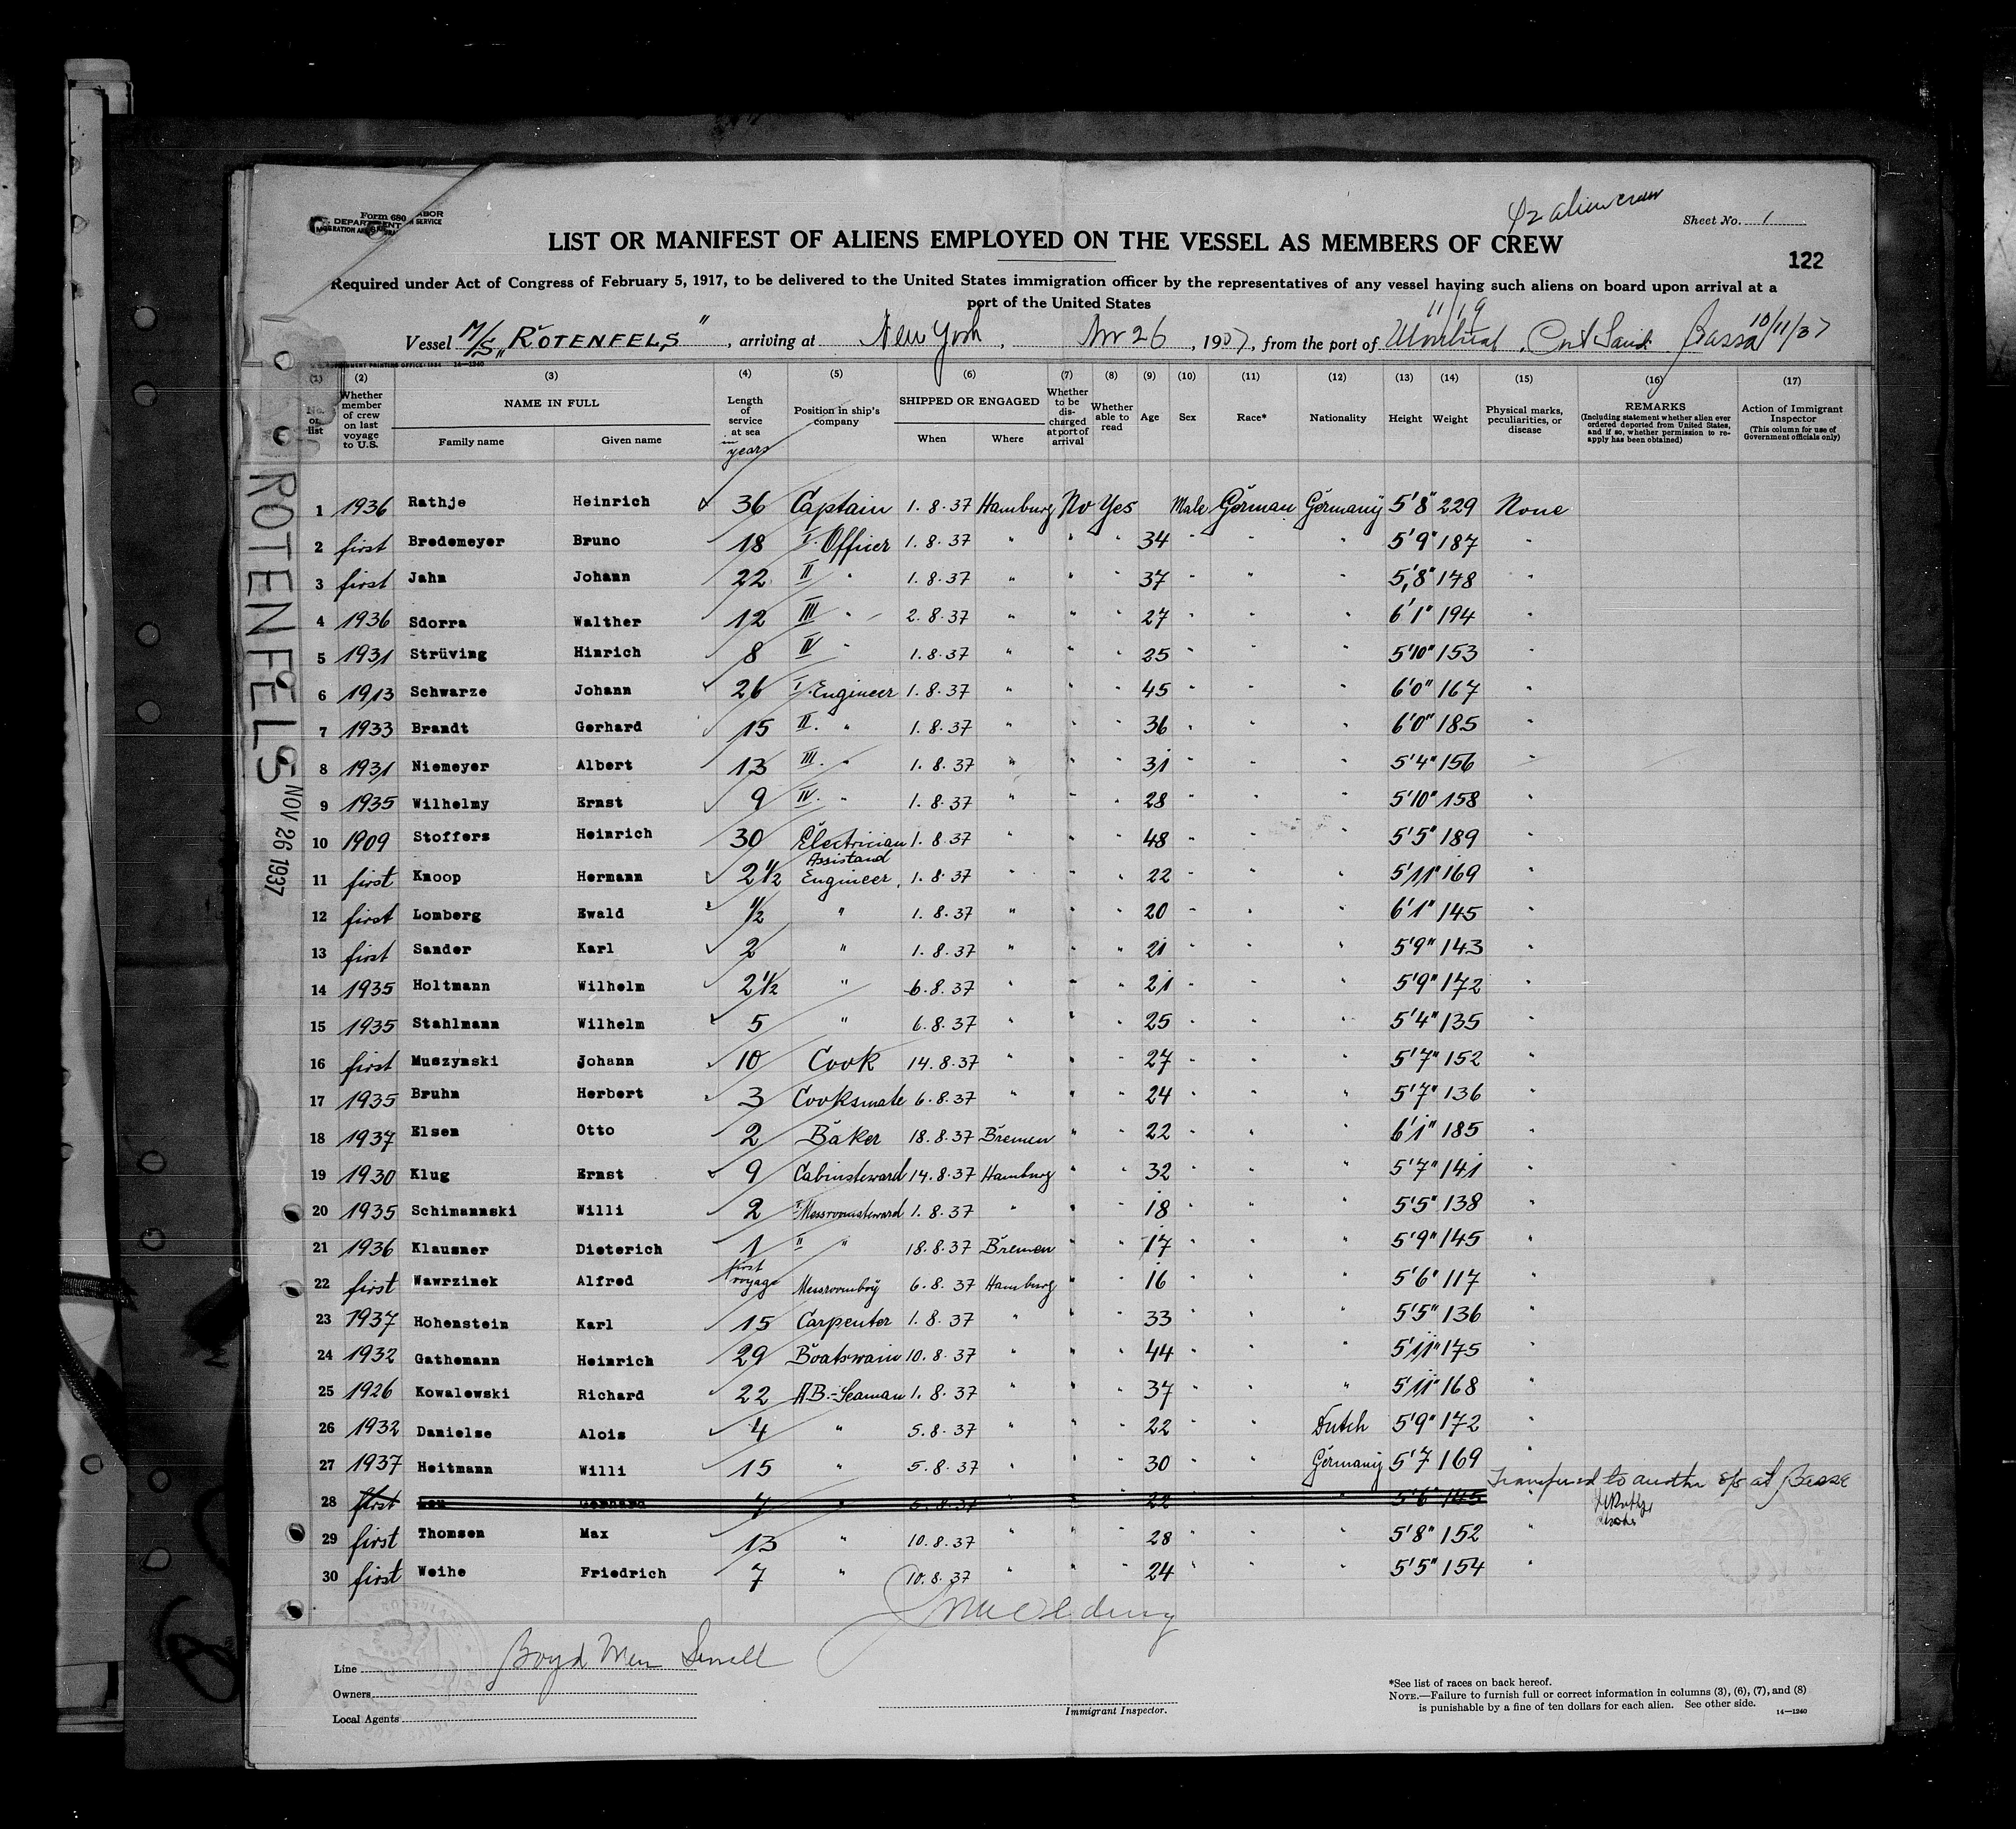 Form 680
42 alien crew
Sheet No. 1
LIST OR MANIFEST OF ALIENS EMPLOYED ON THE VESSEL AS MEMBERS OF CREW
122
Required under Act of Congress of February 5, 1917, to be delivered to the United States immigration officer by the representatives of any vessel having such aliens on board upon arrival at a
port of the United States
11/19 10/11/37
Vessel M/S „ROTENFELS", arriving at New York, Nov 26, 1937, from the port of Montreal, Port Said Bassa
(1) (2) (3) (4) (5) (6) (7) (8) (9) (10) (11) (12) (13) (14) (15) (16) (17)
No. on list
Whether member of crew on last voyage to U.S.
NAME IN FULL
Family name Given name
Length of service at sea in years
Position in ship's company
SHIPPED OR ENGAGED
When Where
Whether to be discharged at port of arrival
Whether able to read
Age Sex Race* Nationality Height Weight
Physical marks, peculiarities, or disease
REMARKS
(Including statement whether alien ever ordered deported from United States, and if so, whether permission to reapply has been obtained)
Action of Immigrant Inspector
(This column for use of Government officials only)
ROTENFELS NOV 26 1937
1 1936 Rathje Heinrich 36 Captain 1.8.37 Hamburg No Yes Male German Germany 5'8" 229 None
2 first Bredemeyer Bruno 18 I. Officer 1.8.37 " " " 34 " " " 5'9" 187 "
3 first Jahn Johann 22 II " 1.8.37 " " " 37 " " " 5'8" 178 "
4 1936 Sdorra Walther 12 III " 2.8.37 " " " 27 " " " 6'1" 194 "
5 1931 Strüving Hinrich 8 IV " 1.8.37 " " " 25 " " " 5'10" 153 "
6 1913 Schwarze Johann 26 I. Engineer 1.8.37 " " " 45 " " " 6'0" 167 "
7 1933 Brandt Gerhard 15 II. " 1.8.37 " " " 36 " " " 6'0" 185 "
8 1931 Niemeyer Albert 13 III. " 1.8.37 " " " 31 " " " 5'4" 156 "
9 1935 Wilhelmy Ernst 9 IV. " 1.8.37 " " " 28 " " " 5'10" 158 "
10 1909 Stoffers Heinrich 30 Electrician 1.8.37 " " " 48 " " " 5'5" 189 "
11 first Knoop Hermann 2 1/2 Assistand Engineer 1.8.37 " " " 22 " " " 5'11" 169 "
12 first Lomberg Ewald 1/2 " 1.8.37 " " " 20 " " " 6'1" 145 "
13 first Sander Karl 2 " 1.8.37 " " " 21 " " " 5'9" 143 "
14 1935 Holtmann Wilhelm 2 1/2 " 6.8.37 " " " 21 " " " 5'9" 172 "
15 1935 Stahlmann Wilhelm 5 " 6.8.37 " " " 25 " " " 5'4" 135 "
16 first Muszynski Johann 10 Cook 14.8.37 " " " 27 " " " 5'7" 152 "
17 1935 Bruhn Herbert 3 Cooksmate 6.8.37 " " " 24 " " " 5'7" 136 "
18 1937 Elsen Otto 2 Baker 18.8.37 Bremen " " 22 " " " 6'1" 185 "
19 1930 Klug Ernst 9 Cabinsteward 14.8.37 Hamburg " " 32 " " " 5'7" 141 "
20 1935 Schimannski Willi 2 I Messroomsteward 1.8.37 " " " 18 " " " 5'5" 138 "
21 1936 Klausner Dieterich 1 II " 18.8.37 Bremen " " 17 " " " 5'9" 145 "
22 first Wawrzinek Alfred first voyage Messroomboy 6.8.37 Hamburg " " 16 " " " 5'6" 117 "
23 1937 Hohenstein Karl 15 Carpenter 1.8.37 " " " 33 " " " 5'5" 136 "
24 1932 Gathemann Heinrich 29 Boatswain 10.8.37 " " " 44 " " " 5'11" 175 "
25 1926 Kowalewski Richard 22 AB.-Seaman 1.8.37 " " " 37 " " " 5'11" 168 "
26 1932 Danielse Alois 4 " 5.8.37 " " " 22 " " Dutch 5'9" 172 "
27 1937 Heitmann Willi 15 " 5.8.37 " " " 30 " " Germany 5'7 169 "
28 first Gerhard 4 " 5.8.37 " " " 22 " " " 5'6" 145 " Transferred to another s/s at Bassa
29 first Thomsen Max 13 " 10.8.37 " " " 28 " " " 5'8" 152 "
30 first Weihe Friedrich 7 " 10.8.37 " " " 24 " " " 5'5" 154 "
Line Boyd
Owners
Local Agents
Immigrant Inspector.
*See list of races on back hereof.
NOTE.—Failure to furnish full or correct information in columns (3), (6), (7), and (8)
is punishable by a fine of ten dollars for each alien. See other side.
14—1240